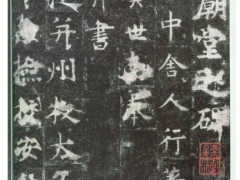 廟堂之碑
中舍人行著
世南奉
并書
并州牧太子
檢校安